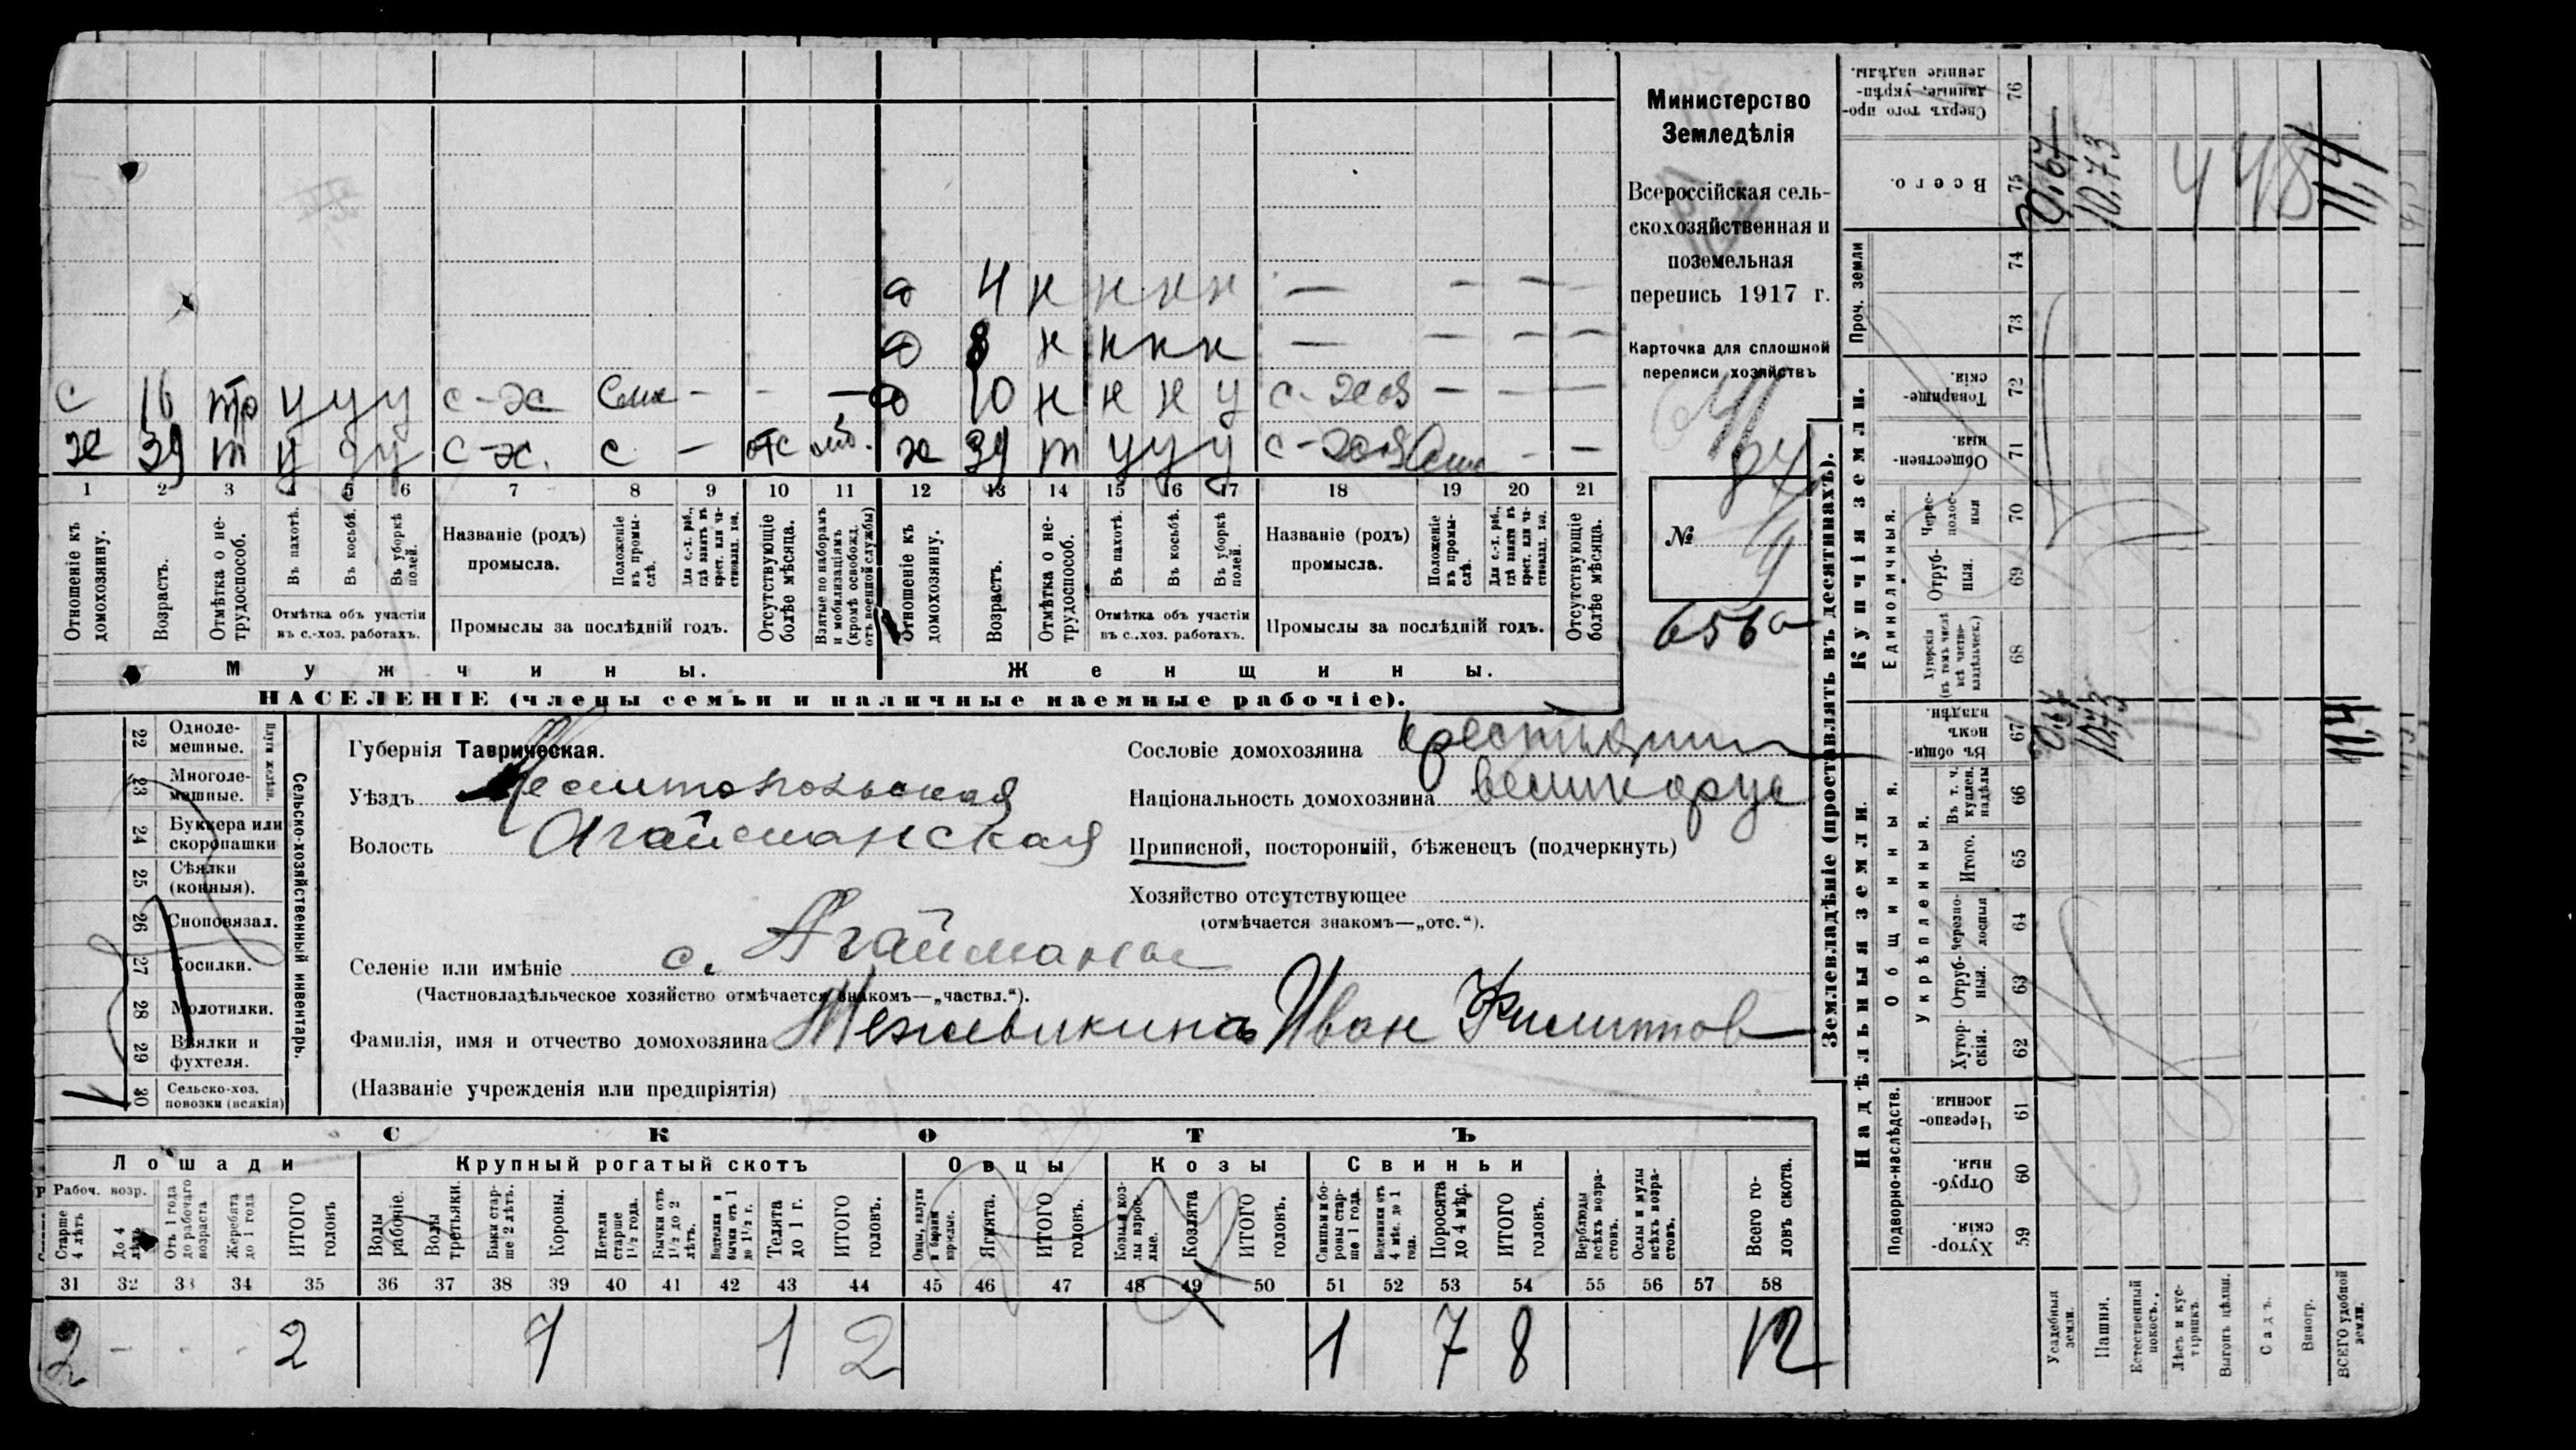 д 4 н н н н — — — —
д 8 н н н н — — — —
с 16 тр у у у с-х Сих - - — д 10 н н н у с-хоз — — —
х 39 т у у у с-х. с - отс моб. х 39 т у у у с-хоз - —
1 2 3 4 5 6 7 8 9 10 11 12 13 14 15 16 17 18 19 20 21
Отношеніе къ домохозяину.
Возрастъ.
Отмѣтка о нетрудоспособ.
Въ пахотѣ.
Въ косьбѣ.
Въ уборкѣ полей.
Отмѣтка объ участіи въ с.-хоз. работахъ.
Названіе (родъ) промысла.
Положеніе въ промыслѣ.
Для с.-х. раб., гдѣ занятъ въ крест. или частновлад. хоз.
Промыслы за послѣдній годъ.
Отсутствующіе болѣе мѣсяца.
Взятые по наборамъ и мобилизаціямъ (кромѣ освобожд. отъ военной службы)
Отношеніе къ домохозяину.
Возрастъ.
Отмѣтка о нетрудоспособ.
Въ пахотѣ.
Въ косьбѣ.
Въ уборкѣ полей.
Отмѣтка объ участіи въ с.-хоз. работахъ.
Названіе (родъ) промысла.
Положеніе въ промыслѣ.
Для с.-х. раб., гдѣ занятъ въ крест. или частновлад. хоз.
Промыслы за послѣдній годъ.
Отсутствующіе болѣе мѣсяца.
Мужчины. Женщины.
НАСЕЛЕНІЕ (члены семьи и наличные наемные рабочіе).
Министерство
Земледѣлія
Всероссійская сель-
скохозяйственная и
поземельная
перепись 1917 г.
Карточка для сплошной
переписи хозяйствъ
№
656а
Сельско-хозяйственный инвентарь.
Плуги желѣзн.
22 Однолемешные.
23 Многолемешные.
24 Буккера или скоропашки
25 Сѣялки (конныя).
26 Сноповязал.
27 Косилки.
28 Молотилки.
29 Вѣялки и фухтеля.
30 Сельско-хоз. повозки (всякія)
1
Губернія Таврическая.
Уѣздъ Мелитопольская
Волость Агайманская
Селеніе или имѣніе с. Агайманы
(Частновладѣльческое хозяйство отмѣчается знакомъ—„частвл.“).
Фамилія, имя и отчество домохозяина Иван Филиппов
(Названіе учрежденія или предпріятія)
Сословіе домохозяина крестьянин
Національность домохозяина великорус
Приписной, посторонній, бѣженецъ (подчеркнуть)
Хозяйство отсутствующее
(отмѣчается знакомъ—„отс.“).
СКОТЪ
Лошади Крупный рогатый скотъ Овцы Козы Свиньи
Рабоч. возр.
Старше 4 лѣтъ
До 4 лѣтъ
Отъ 1 года до рабочаго возраста
Жеребята до 1 года
ИТОГО головъ
Волы рабочіе.
Волы третьяки.
Быки старше 2 лѣтъ.
Коровы.
Нетели старше 1½ года.
Бычки отъ 1½ до 2 лѣтъ.
Подтелки и бычки отъ 1 до 1½ г.
Телята до 1 г.
ИТОГО головъ.
Овцы, валухи и бараны взрослые.
Ягнята.
ИТОГО головъ.
Козы и козлы взрослые.
Козлята
ИТОГО головъ.
Свиньи и боровы старше 1 года.
Подсвинки отъ 4 мѣс. до 1 года.
Поросята до 4 мѣс.
ИТОГО головъ.
Верблюды всѣхъ возрастовъ.
Ослы и мулы всѣхъ возрастовъ.
Всего головъ скота.
31 32 33 34 35 36 37 38 39 40 41 42 43 44 45 46 47 48 49 50 51 52 53 54 55 56 57 58
2 - - - 2 1 1 2 1 7 8 12
Землевладѣніе (проставлять въ десятинахъ).
Надѣльныя земли. Купчія земли. Проч. земли
Подворно-наслѣдств. Общинныя. Единоличныя.
Укрѣпленныя.
59 Хуторскія
60 Отрубныя.
61 Черезполосныя.
62 Хуторскія.
63 Отрубныя.
64 Черезполосныя
65 Итого.
66 Въ т. ч. куплен. надѣлы
67 Въ общинномъ владѣн.
68 Хуторскія (въ томъ числѣ всѣ частновладѣльческ.)
69 Отрубныя.
70 Черезполосныя
71 Общественныя.
72 Товарищескія.
73
74
75 Всего.
76 Сверхъ того проданные, укрѣпленные надѣлы.
Усадебныя земли. 0,67 0,67
Пашня. 10,73 10,73
Естественный покосъ.
Лѣсъ и кустарникъ.
Выгонъ цѣлин.
Садъ.
Виногр.
ВСЕГО удобной земли. 11,4 11,4
448